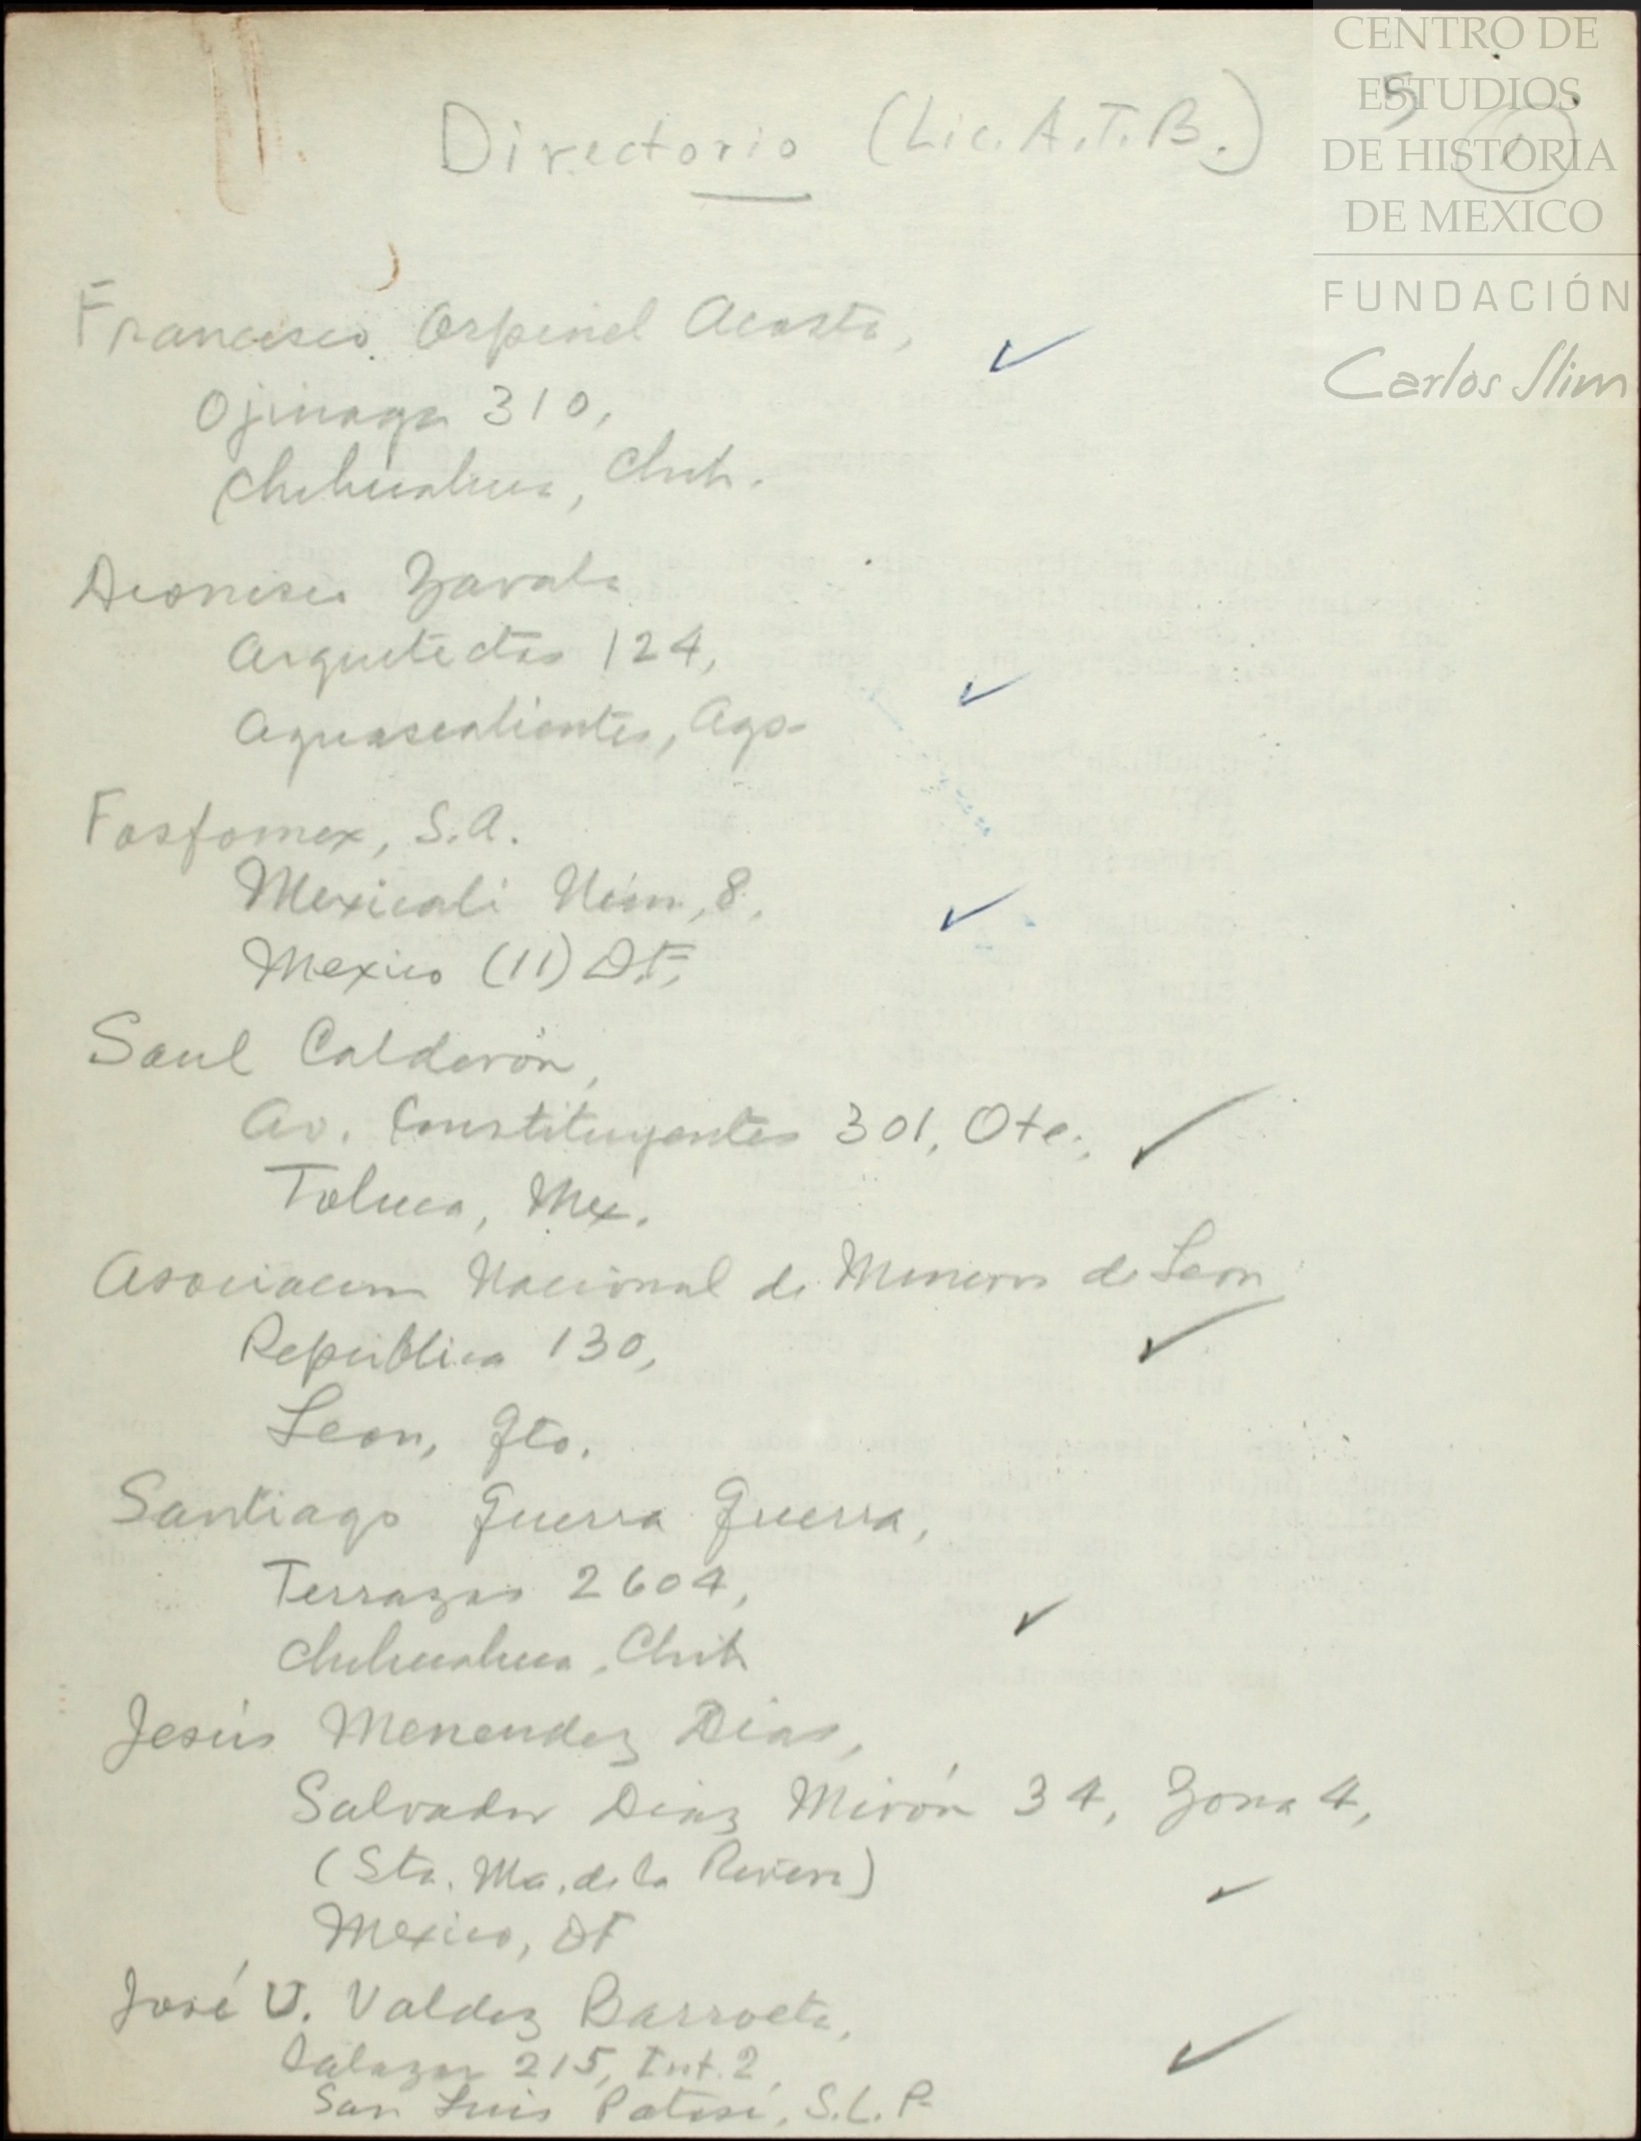 CENTRO DE
ESTUDIOS
DE HISTORIA
DE MEXICO
FUNDACIÓN
Carlos Slim
5
Directorio (Lic. A.T.B.)
Francisco Ospinel Acosta,
Ojinaga 310,
Chihuahua, Chih.
Dionisio Zavala
Arquitectos 124,
Aguascalientes, Ags.
Fosfomex, S.A.
Mexicali Núm, 8,
Mexico (11) D.F.
Saul Calderón,
Av. Constituyentes 301, Ote.,
Toluca, Mex.
Asociacion Nacional de Mineros de Leon
República 130,
Leon, Gto.
Santiago Guerra Guerra,
Terrazas 2604,
Chihuahua, Chih
Jesús Menendez Dias,
Salvador Diaz Mirón 34, Zona 4,
(Sta. Ma. de la Rivera)
Mexico, DF
José U. Valdez Barroeta,
Salazar 215, Int. 2,
San Luis Potosí, S.L.P.